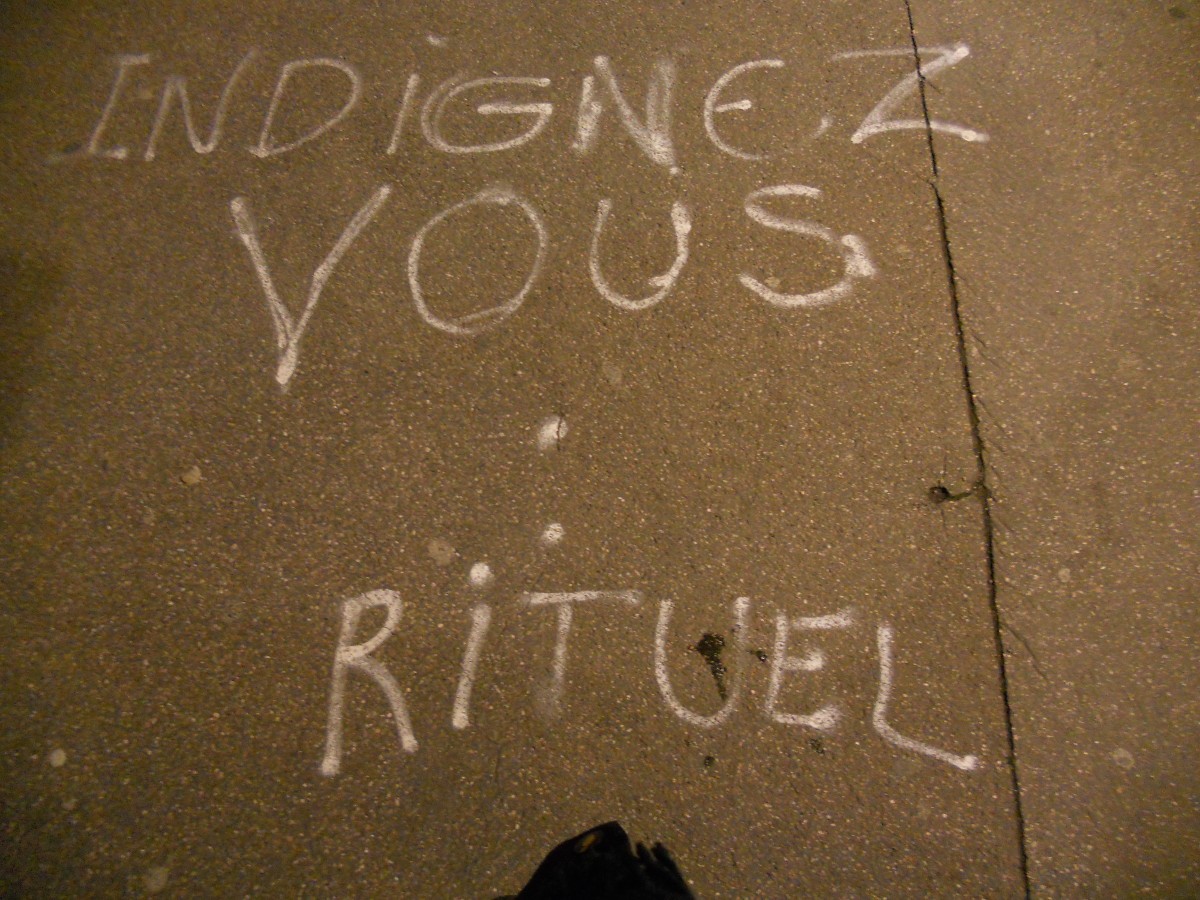 INDIGNEZ
VOUS
:
RiTUEL